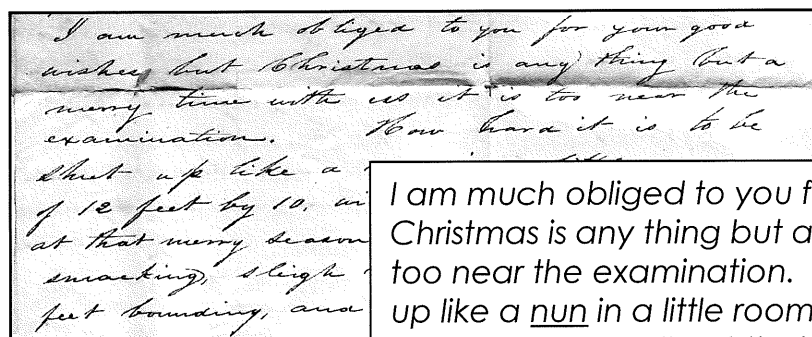 I am much obliged to you for your good
wishes but Christmas is any thing but a
merry time with us it is too near the
examination. How hard it is to be
shut up like a
of 12 feet by 10,
at that merry season
smacking, sleigh
feet bounding, and
I am much obliged to you f
Christmas is any thing but a
too near the examination.
up like a nun in a little room